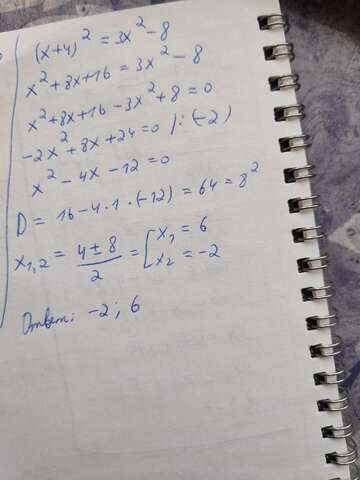 (x+4)² = 3x² - 8
x² + 8x + 16 = 3x² - 8
x² + 8x + 16 - 3x² + 8 = 0
-2x² + 8x + 24 = 0 /: (-2)
x² - 4x - 12 = 0
D = 16 - 4 · 1 · (-12) = 64 = 8²
x₁,₂ = (4 ± 8)/2 = [x₁ = 6
x₂ = -2
Ответ: -2; 6